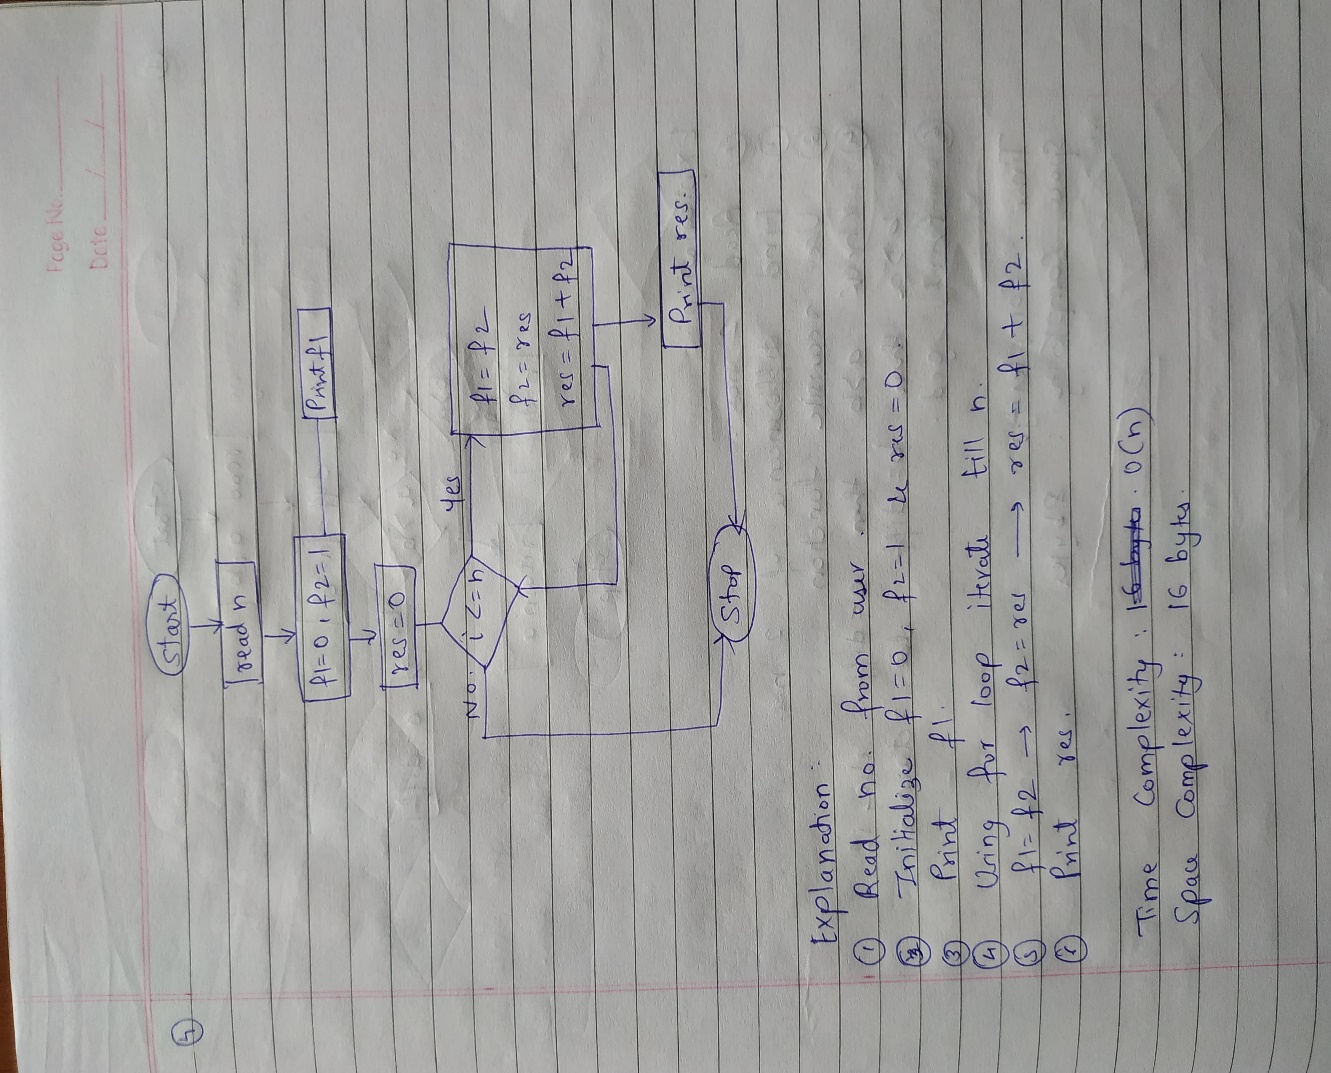 Page No.
Date / /
4
Start
read n
f1=0, f2=1
Print f1
res=0
i<=n
Yes
No.
f1=f2
f2=res
res=f1+f2
Print res.
Stop
Explanation:
① Read no. from user.
② Initialize f1=0, f2=1 & res=0.
③ Print f1.
④ Using for loop iterate till n.
⑤ f1=f2 → f2=res → res=f1+f2.
Print res.
Time Complexity: 16 bytes. O(n)
Space Complexity: 16 bytes.